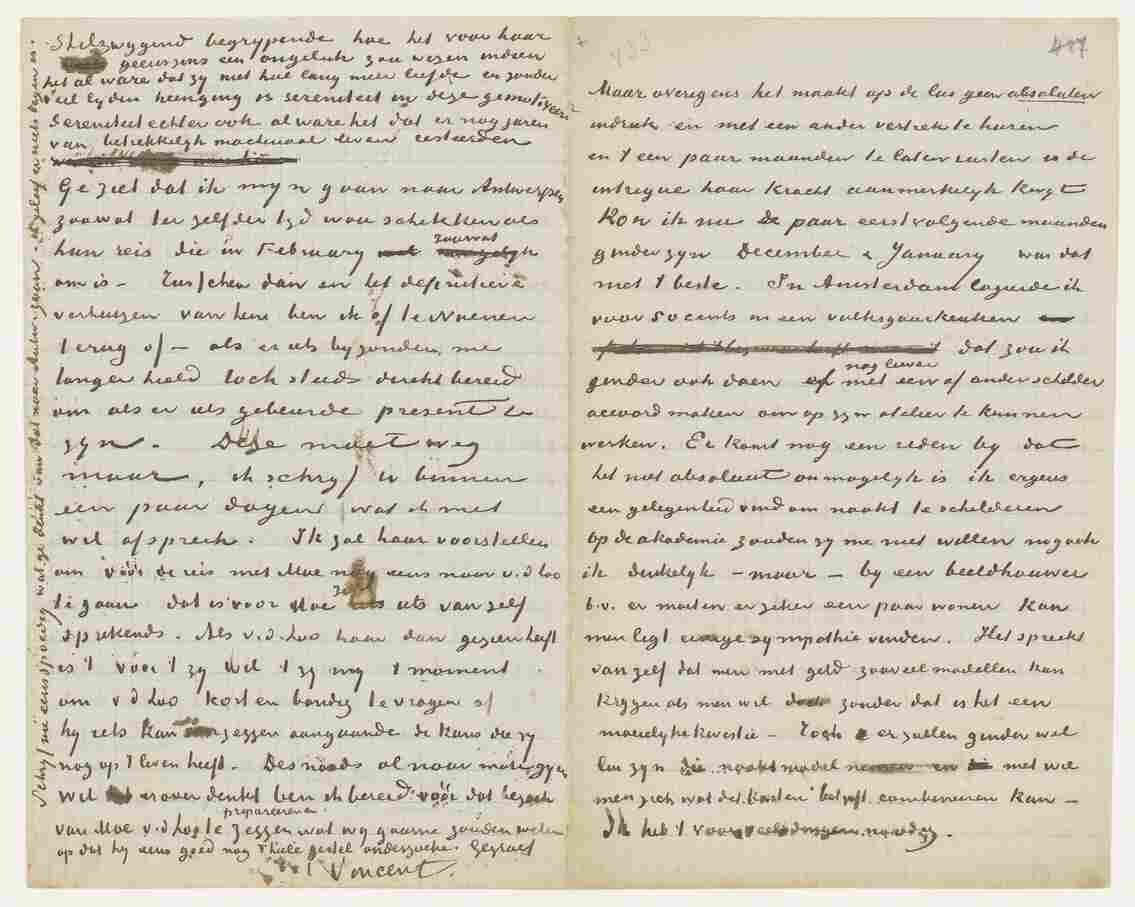 Stilzwygend begrypende hoe het voor haar
geenszins een ongeluk zou wezen indien
het al ware dat zy niet heel lang meer leefde en zonder
veel lyden heenging is sereniteit in deze gemotiveerd
Sereniteit echter ook al ware het dat er nog jaren
van betrekkelyk machinaal leven resteerden
Ge ziet dat ik myn gaan naar Antwerpen
zoowat ter zelfder tyd wou schikken als
hun reis die in February zoowat
om is – Tusschen dan en het definitieve
verhuizen van hen ben ik of te Nuenen
terug of – als er iets byzonders me
langer hield toch steeds direkt bereid
om als er iets gebeurde present te
zyn. Deze moet weg
maar, ik schryf u binnen
een paar dagen wat ik met
Wil afspreek. Ik zal haar voorstellen
om vóór de reis met Moe nog eens naar v.d Loo
te gaan dat is voor Moe zelf iets van zelf
sprekends. Als v.d. Loo haar dan gezien heeft
is 't vóór 't zy Wil 't zy my 't moment
om v d Loo kort en bondig te vragen of
hy iets kan zeggen aangaande de kans die zy
nog op 't leven heeft. Desnoods al naar mate gy en
Wil er over denkt ben ik bereid vóór dat bezoek
praparerend
van Moe v.d Loo te zeggen wat wy gaarne zouden weten
op dat hy eens goed nog 't heele gestel onderzoeke. Gegroet
t à t Vincent.
Schryf me eens spoedig wat ge denkt van dat naar Antw. gaan. ik geloof er niets tegen is.
487
Maar overigens het maakt op de lui geen absoluten
indruk en met een ander vertrek te huren
en 't een paar maanden te laten rusten is de
intrigue haar kracht aanmerkelyk kwyt
Kon ik nu de paar eerstvolgende maanden
ginder zyn December & January was dat
met 't beste. In Amsterdam logeerde ik
voor 50 cents in een volksgaarkeuken
dat zou ik
ginder ook doen of nog liever met een of ander schilder
accoord maken om op zyn atelier te kunnen
werken. Er komt nog een reden by dat
het niet absoluut onmogelyk is ik ergens
een gelegenheid vind om naakt te schilderen
Op de akademie zouden zy me niet willen nog ook
ik denkelyk – maar – by een beeldhouwer
b.v. er moeten er zeker een paar wonen kan
men ligt eenige sympathie vinden. Het spreekt
van zelf dat men met geld zooveel modellen kan
krygen als men wil doch zonder dat is het een
moeielyke kwestie – Toch er zullen ginder wel
lui zyn die naakt model nemen en met wie
men zich wat de kosten betreft combineeren kan –
Ik heb 't voor veel dingen noodig.